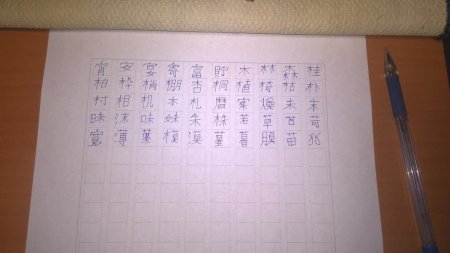 宵安宴寄富貯木林森桂
柏枠梢棚杏桐植椅枯朴
村相机本札暦案燥未末
昧沫味妹朱株若草苦苛
寛薄葉模漠墓暮膜苗兆